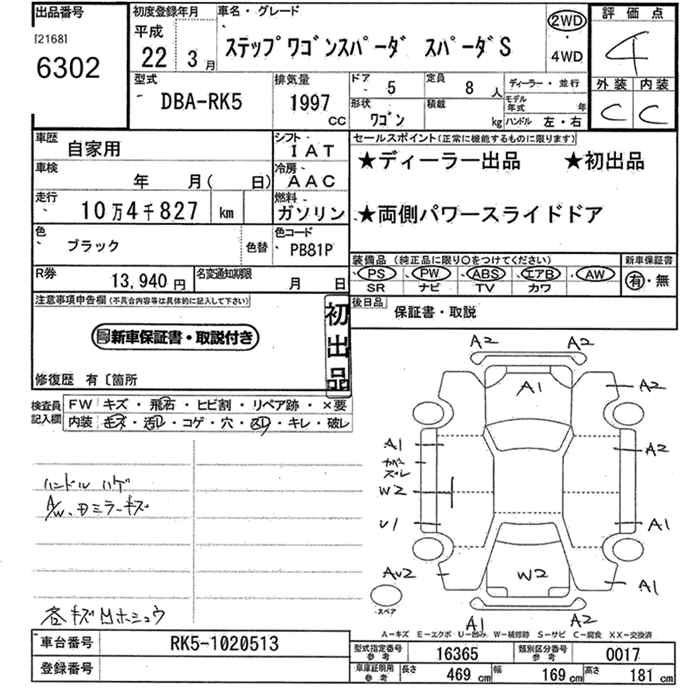 出品番号
[2168]
6302
初度登録年月
平成
22年 3月
車名・グレード
ステップワゴンスパーダ スパーダS
2WD
・
4WD
評価点
4
外装 内装
C C
型式
DBA-RK5
排気量
1997
CC
ドア
5
定員
8人
形状
ワゴン
積載
kg
ディーラー・並行
モデル年式 年
ハンドル 左・右
車歴
自家用
シフト
IAT
車検
年 月( 日)
冷房
AAC
走行
10万4千827 km
燃料
ガソリン
色
ブラック
色替
色コード
PB81P
R券
13,940円
名変通知期限
月 日
セールスポイント(正常に機能するものに限ります)
★ディーラー出品 ★初出品
★両側パワースライドドア
装備品 (純正品に限り○をつけてください)
PS PW ABS エアB AW
SR ナビ TV カワ
新車保証書
有・無
後日品
保証書・取説
注意事項申告欄(不具合内容等は具体的に記入して下さい)
新車保証書・取説付き
初出品
修復歴 有〔箇所
検査員記入欄
FW キズ・飛石・ヒビ割・リペア跡・×要
内装 キズ・汚レ・コゲ・穴・スレ・キレ・破レ
ハンドル ハゲ
A/W、ドミラーキズ
各キズ凹ホシュウ
A2 A2
A1
A2
A1
A2
カバーズレ
W2
U1
A1
AU2
W2
A1
スペア
A1
A2
A-キズ E-エクボ U-凹み W-補修跡 S-サビ C-腐食 XX-交換済
車台番号
RK5-1020513
登録番号
型式指定番号
参考
16365
類別区分番号
参考
0017
車庫証明用
参考
長さ
469 cm
幅
169 cm
高さ
181 cm